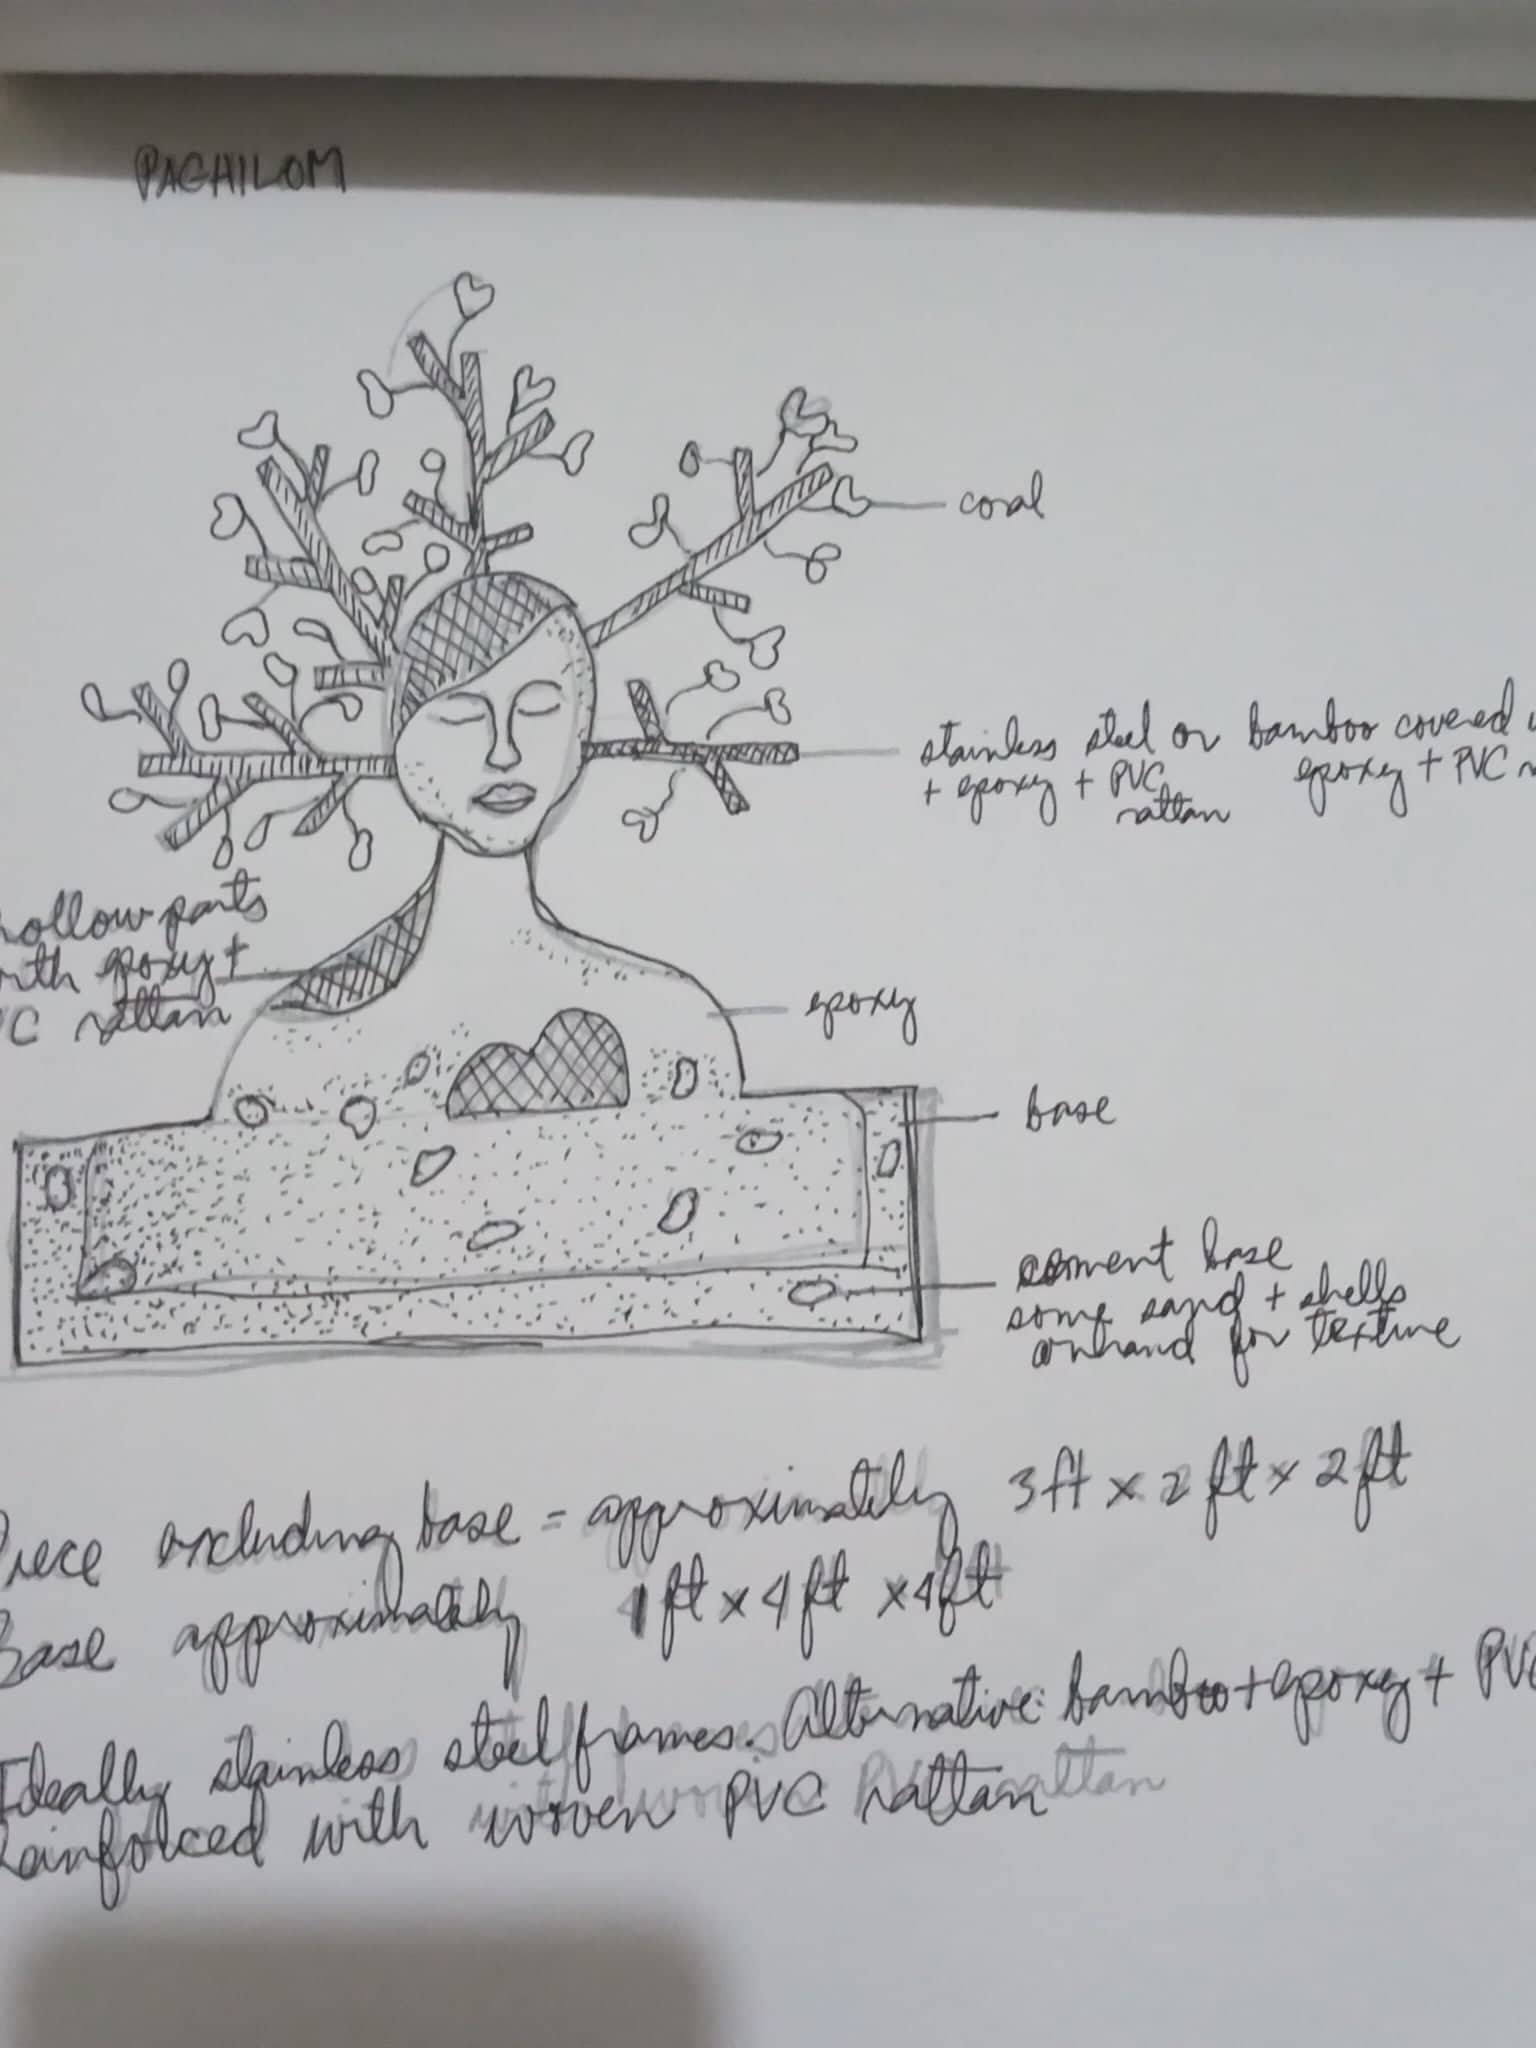 PAGHILOM
coral
stainless steel or bamboo covered
+ epoxy + PVC epoxy + PVC
rattan
hollow parts
with epoxy +
PVC rattan
epoxy
base
cement base
some sand + shells
onhand for texture
Piece excluding base = approximately 3ft x 2ft x 2ft
Base approximately 1ft x 4ft x 4ft
Ideally stainless steel frames. Alternative: bamboo + epoxy + PVC
Reinforced with woven PVC rattan